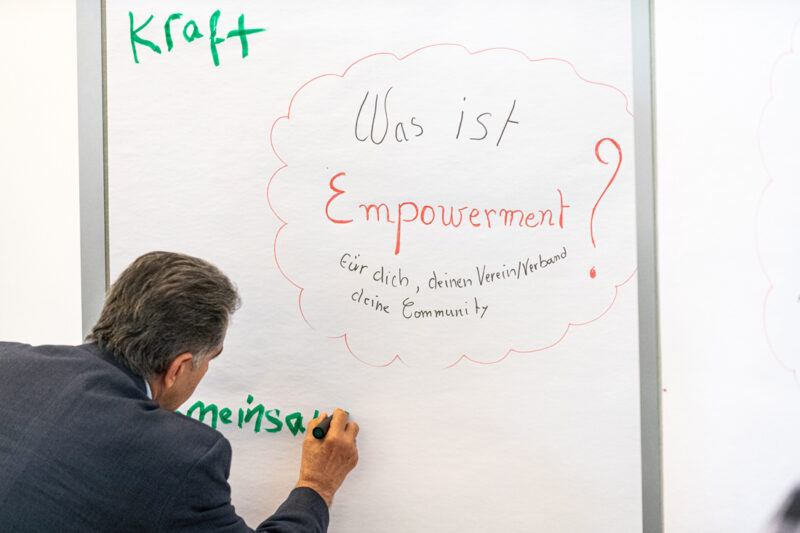 Kraft
Was ist
Empowerment ?
Für dich, deinen Verein/Verband
deine Community
meinsa